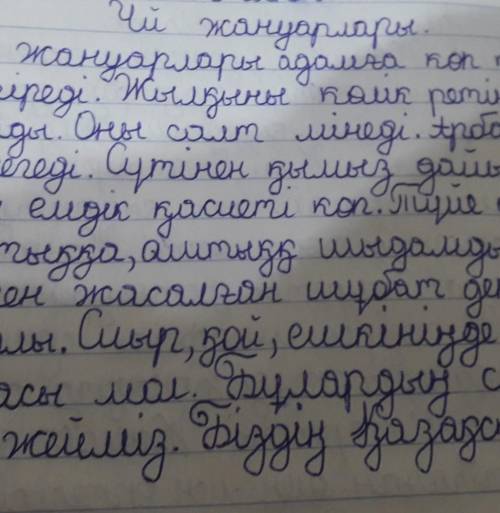 Үй жануарлары.
жануарлары адамға көп
іреді. Жылқыны көлік реті
ды. Оны салт мінеді. Арба
егеді. Сүтінен қымыз дайы
емдік қасиеті көп. Түйе
тыққа, аштыққ шыдамды
ен жасалған шұбат де
лы. Сиыр, қой, ешкініңде
асы мол. Бұлардың с
жейміз. Біздің Қазақс